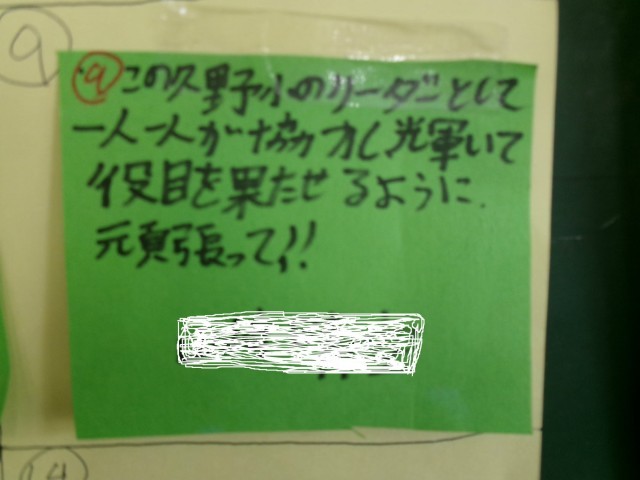 9
⑨この久野小のリーダーとして
一人一人が協力し光輝いて
役目を果たせるように.
頑張って!!
14